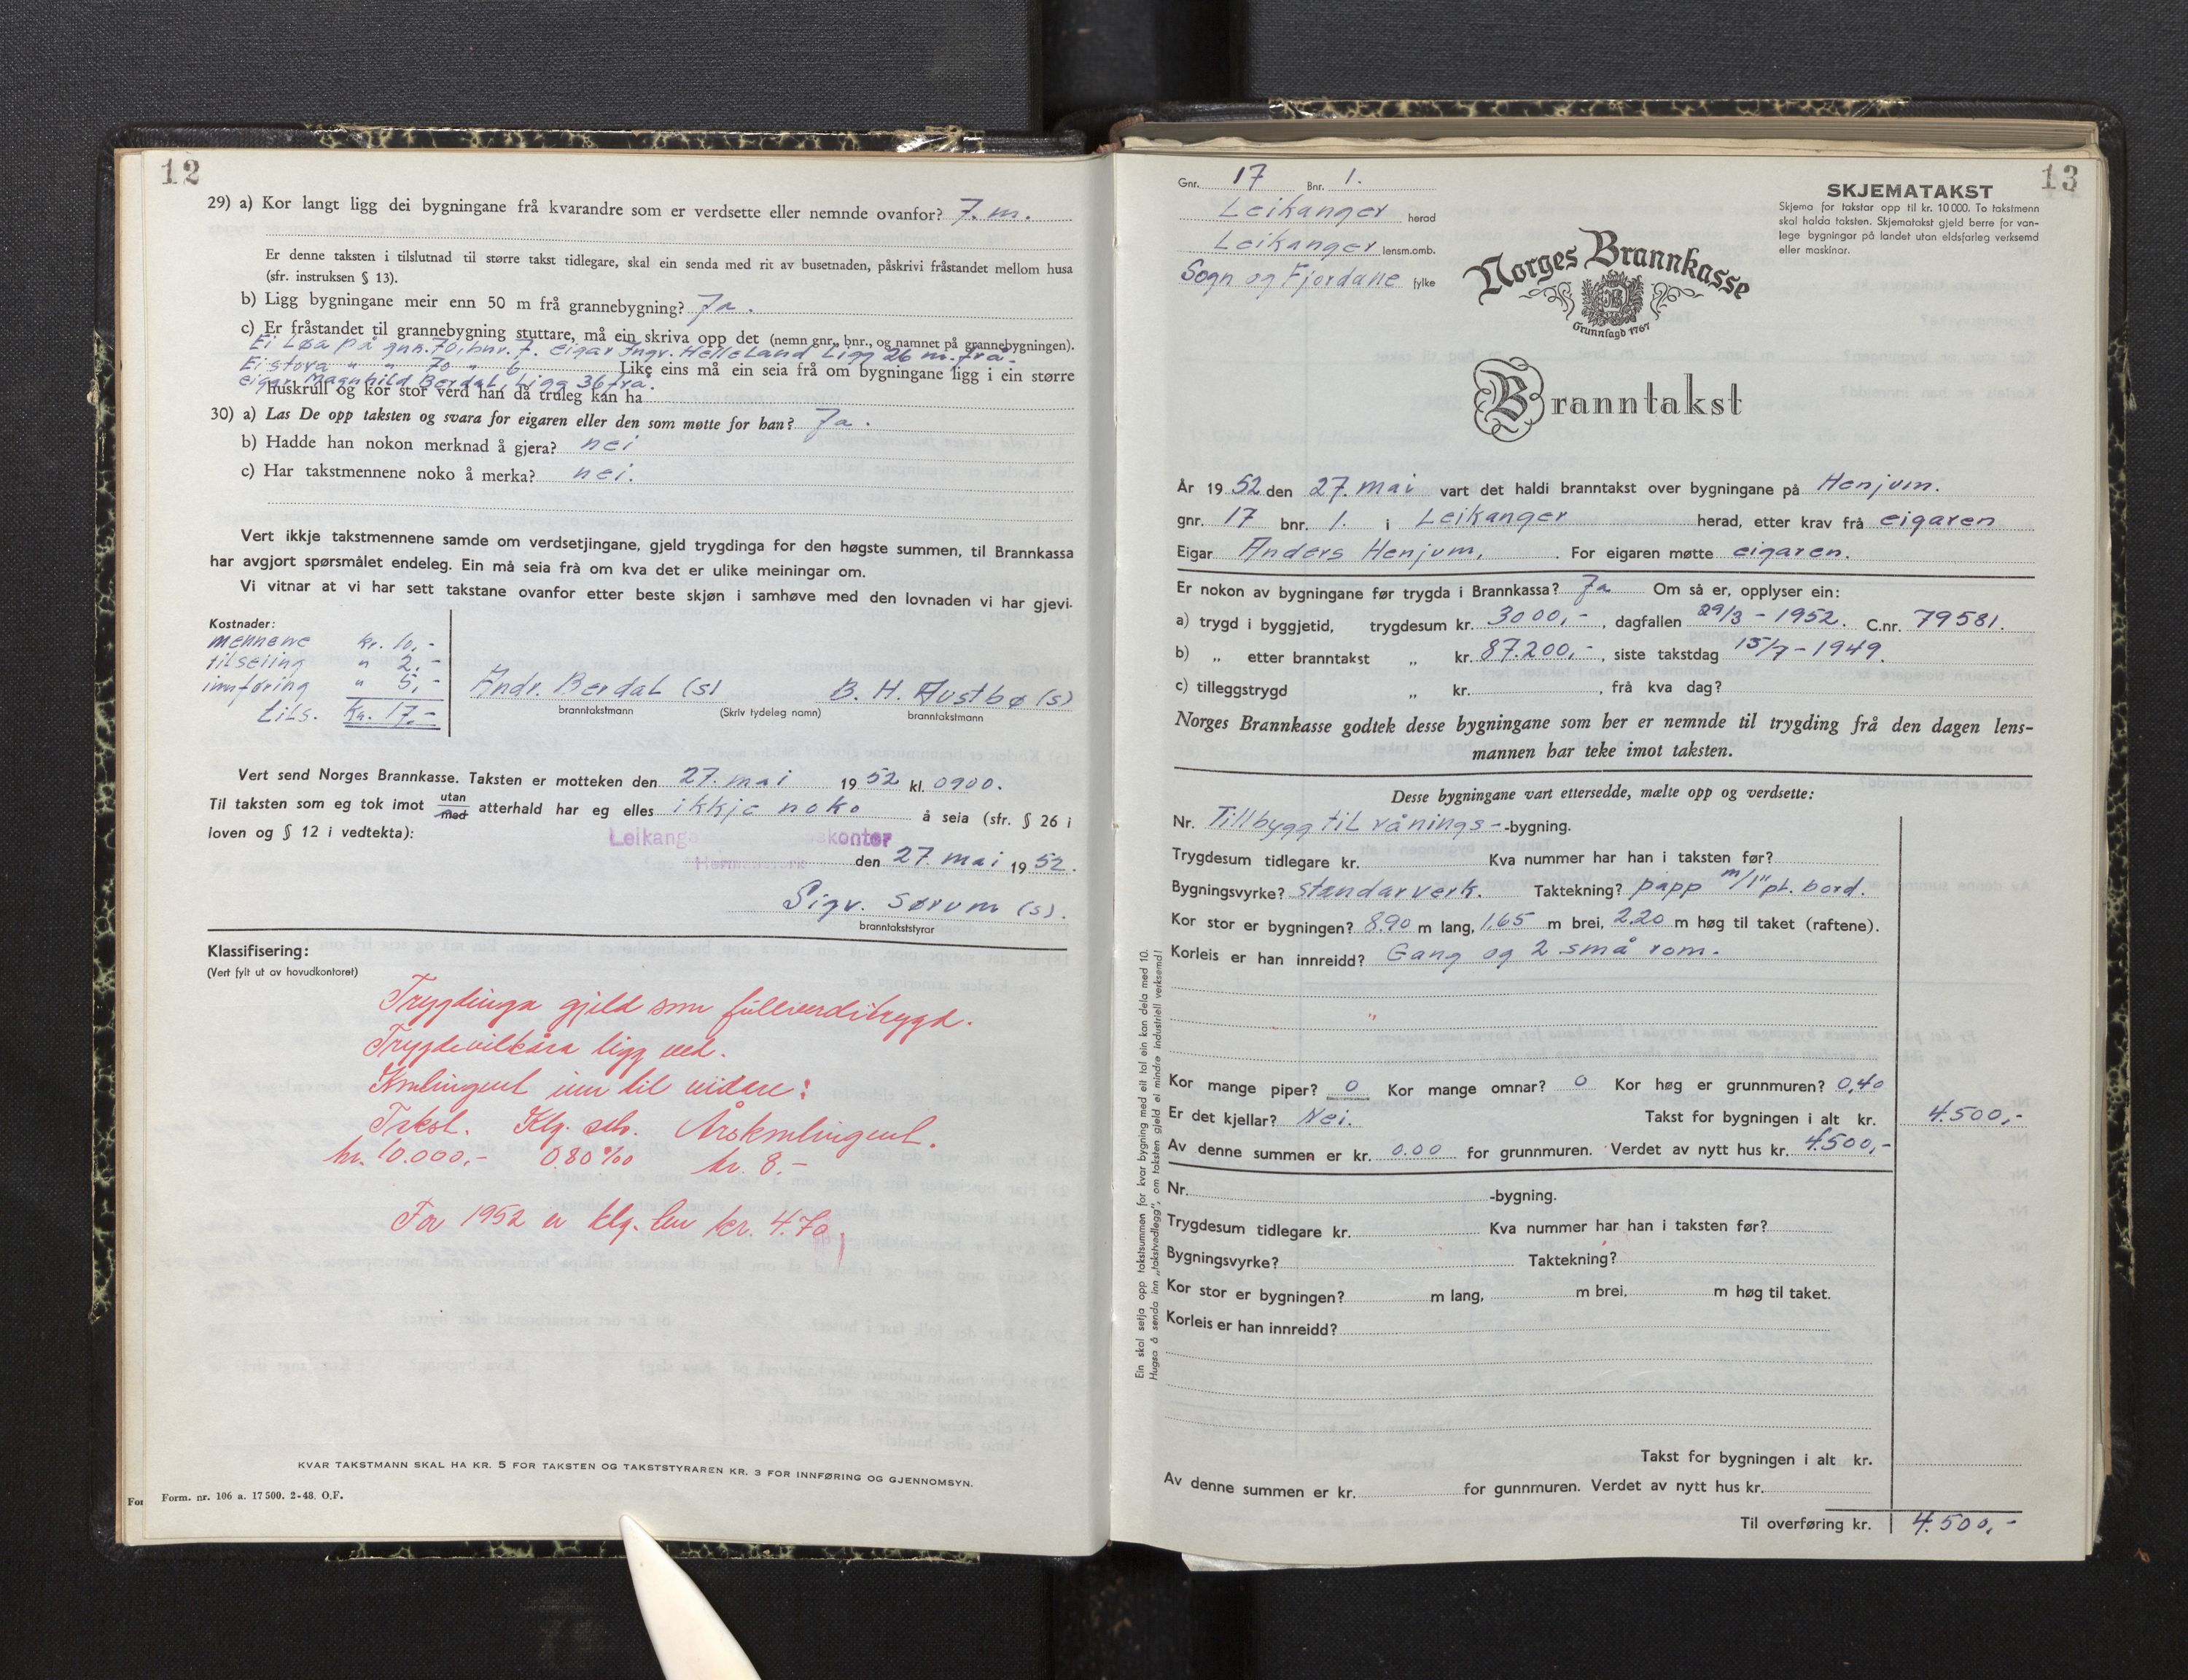 12
29) a) Kor langt ligg dei bygningane frå kvarandre som er verdsette eller nemnde ovanfor? 7. m.
Er denne taksten i tilslutnad til større takst tidlegare, skal ein senda med rit av busetnaden, påskrivi fråstandet mellom husa
(sfr. instruksen § 13).
b) Ligg bygningane meir enn 50 m frå grannebygning? Ja.
c) Er fråstandet til grannebygning stuttare, må ein skriva opp det (nemn gnr., bnr., og namnet på grannebygningen).
Ei Løa på gnr. 70, bnr. 7. eigar Ingv. Helleland Ligg 26 m. frå.
Ei stova " " 70 " 6 Like eins må ein seia frå om bygningane ligg i ein større
eigar Magnhild Berdal, Ligg 36 frå.
huskrull og kor stor verd han då truleg kan ha
30) a) Las De opp taksten og svara for eigaren eller den som møtte for han? Ja.
b) Hadde han nokon merknad å gjera? nei
c) Har takstmennene noko å merka? nei.
Vert ikkje takstmennene samde om verdsetjingane, gjeld trygdinga for den høgste summen, til Brannkassa
har avgjort spørsmålet endeleg. Ein må seia frå om kva det er ulike meiningar om.
Vi vitnar at vi har sett takstane ovanfor etter beste skjøn i samhøve med den lovnaden vi har gjevi.
Kostnader:
mennene kr. 10,-
tilseiing " 2,-
innføring " 5,-
tils. Kr. 17,-
Andr. Berdal (s) B. H. Austbø (s)
branntakstmann (Skriv tydeleg namn) branntakstmann
Vert send Norges Brannkasse. Taksten er motteken den 27. mai 1952 kl. 0900.
Til taksten som eg tok imot utan/med atterhald har eg elles ikkje noko å seia (sfr. § 26 i
loven og § 12 i vedtekta):
Leikang konter
den 27. mai 1952.
Sigv. Sørum (s).
branntakststyrar
Klassifisering:
(Vert fylt ut av hovudkontoret)
Trygdinga gjeld som fullverditrygd.
Trygdevilkåra ligg ved.
Kontingent inn til vidare:
Takst. Klg. sats. Årskontingent.
kr. 10.000,- 0.80 ‰ kr. 8.-
For 1952 er klg. len kr. 4.70
KVAR TAKSTMANN SKAL HA KR. 5 FOR TAKSTEN OG TAKSTSTYRAREN KR. 3 FOR INNFØRING OG GJENNOMSYN.
For Form. nr. 106 a. 17 500. 2-48. O.F.
13
Gnr. 17 Bnr. 1.
Leikanger herad
Leikanger lensm.omb.
Sogn og Fjordane fylke
SKJEMATAKST
Skjema for takstar opp til kr. 10 000. To takstmenn
skal halda taksten. Skjematakst gjeld berre for van-
lege bygningar på landet utan eldsfarleg verksemd
eller maskinar.
Norges Brannkasse
Grunnlagd 1767
Branntakst
År 1952 den 27. mai vart det haldi branntakst over bygningane på Henjum.
gnr. 17 bnr. 1. i Leikanger herad, etter krav frå eigaren
Eigar Anders Henjum. For eigaren møtte eigaren.
Er nokon av bygningane før trygda i Brannkassa? Ja Om så er, opplyser ein:
a) trygd i byggjetid, trygdesum kr. 3000,-, dagfallen 29/3 - 1952. C.nr. 79581.
b) „ etter branntakst „ kr. 87.200,-, siste takstdag 15/7 - 1949.
c) tilleggstrygd „ kr. , frå kva dag?
Norges Brannkasse godtek desse bygningane som her er nemnde til trygding frå den dagen lens-
mannen har teke imot taksten.
Desse bygningane vart ettersedde, mælte opp og verdsette:
Nr. Tillbygg til vånings- -bygning.
Trygdesum tidlegare kr. Kva nummer har han i taksten før?
Bygningsvyrke? standarverk. Taktekning? papp m/1" pl. bord.
Kor stor er bygningen? 8.90 m lang, 1,65 m brei, 2.20 m høg til taket (raftene).
Korleis er han innreidd? Gang og 2 små rom.
"
Kor mange piper? 0 Kor mange omnar? 0 Kor høg er grunnmuren? 0,40
Er det kjellar? Nei. Takst for bygningen i alt kr. 4.500,-
Av denne summen er kr. 0.00 for grunnmuren. Verdet av nytt hus kr. 4.500,-
Nr. -bygning.
Trygdesum tidlegare kr. Kva nummer har han i taksten før?
Bygningsvyrke? Taktekning?
Kor stor er bygningen? m lang, m brei, m høg til taket.
Korleis er han innreidd?
Takst for bygningen i alt kr.
Av denne summen er kr. for gunnmuren. Verdet av nytt hus kr.
Til overføring kr. 4.500,-
Ein skal setja opp takstsummen for kvar bygning med eit tal ein kan dela med 10.
Hugsa å senda inn „takstvedlegg", om taksten gjeld ei mindre industriell verksemd!